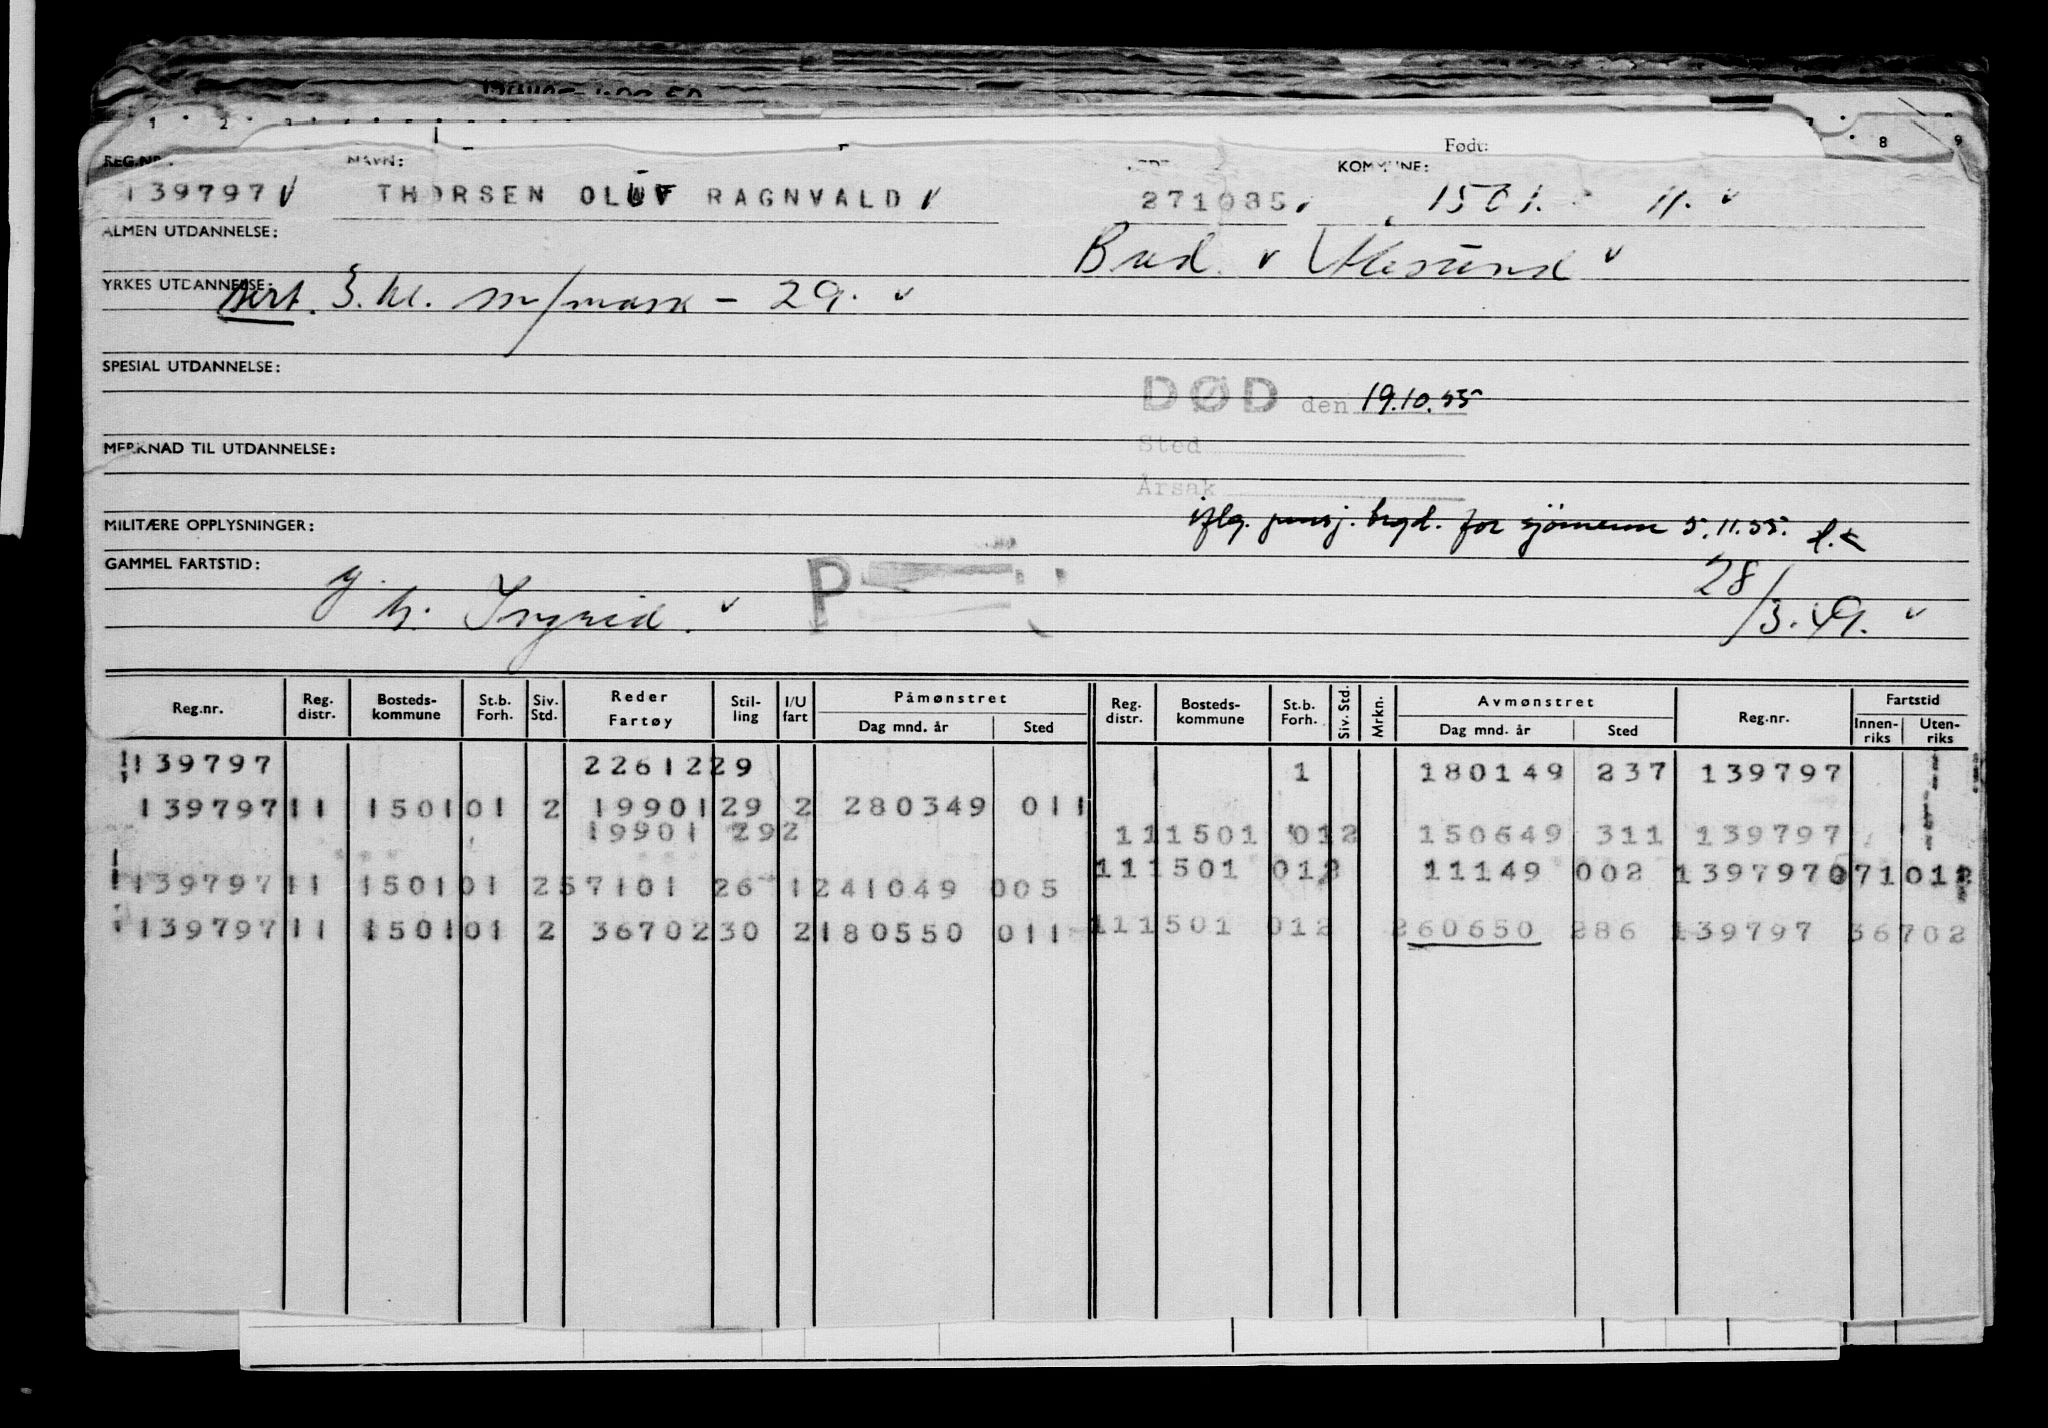 1 2 3 8 9
Født:
REG.NR. NAVN: KOMMUNE:
139797 v THORSEN OLUF RAGNVALD v 271085 1501. 11. v
ALMEN UTDANNELSE:
Bud. v Ålesund v
YRKES UTDANNELSE:
sert. 3. kl. m/mask - 29. v
SPESIAL UTDANNELSE:
DØD den 19.10.55
MERKNAD TIL UTDANNELSE: Sted
Årsak
MILITÆRE OPPLYSNINGER: iflg. pensj. trygd. for sjömenn 5.11.55.
GAMMEL FARTSTID: P
h. Ingrid. v 28/3.49. v
Reg.nr. Reg. distr. Bosteds-kommune St.b. Forh. Siv. Std. Reder Fartøy Stil-ling I/U fart Påmønstret Dag mnd. år Sted Reg. distr. Bosteds-kommune St.b. Forh. Siv. Std. Mrkn. Avmønstret Dag mnd. år Sted Reg.nr. Fartstid Innen-riks Uten-riks
139797 22612 29 1 180149 237 139797
139797 11 1501 01 2 19901 29 2 280349 011
19901 29 2 11 1501 01 2 150649 311 139797
139797 11 1501 01 2 57101 26 1 241049 005 11 1501 01 2 11149 002 139797 071012
139797 11 1501 01 2 36702 30 2 180550 011 11 1501 01 2 260650 286 139797 36702